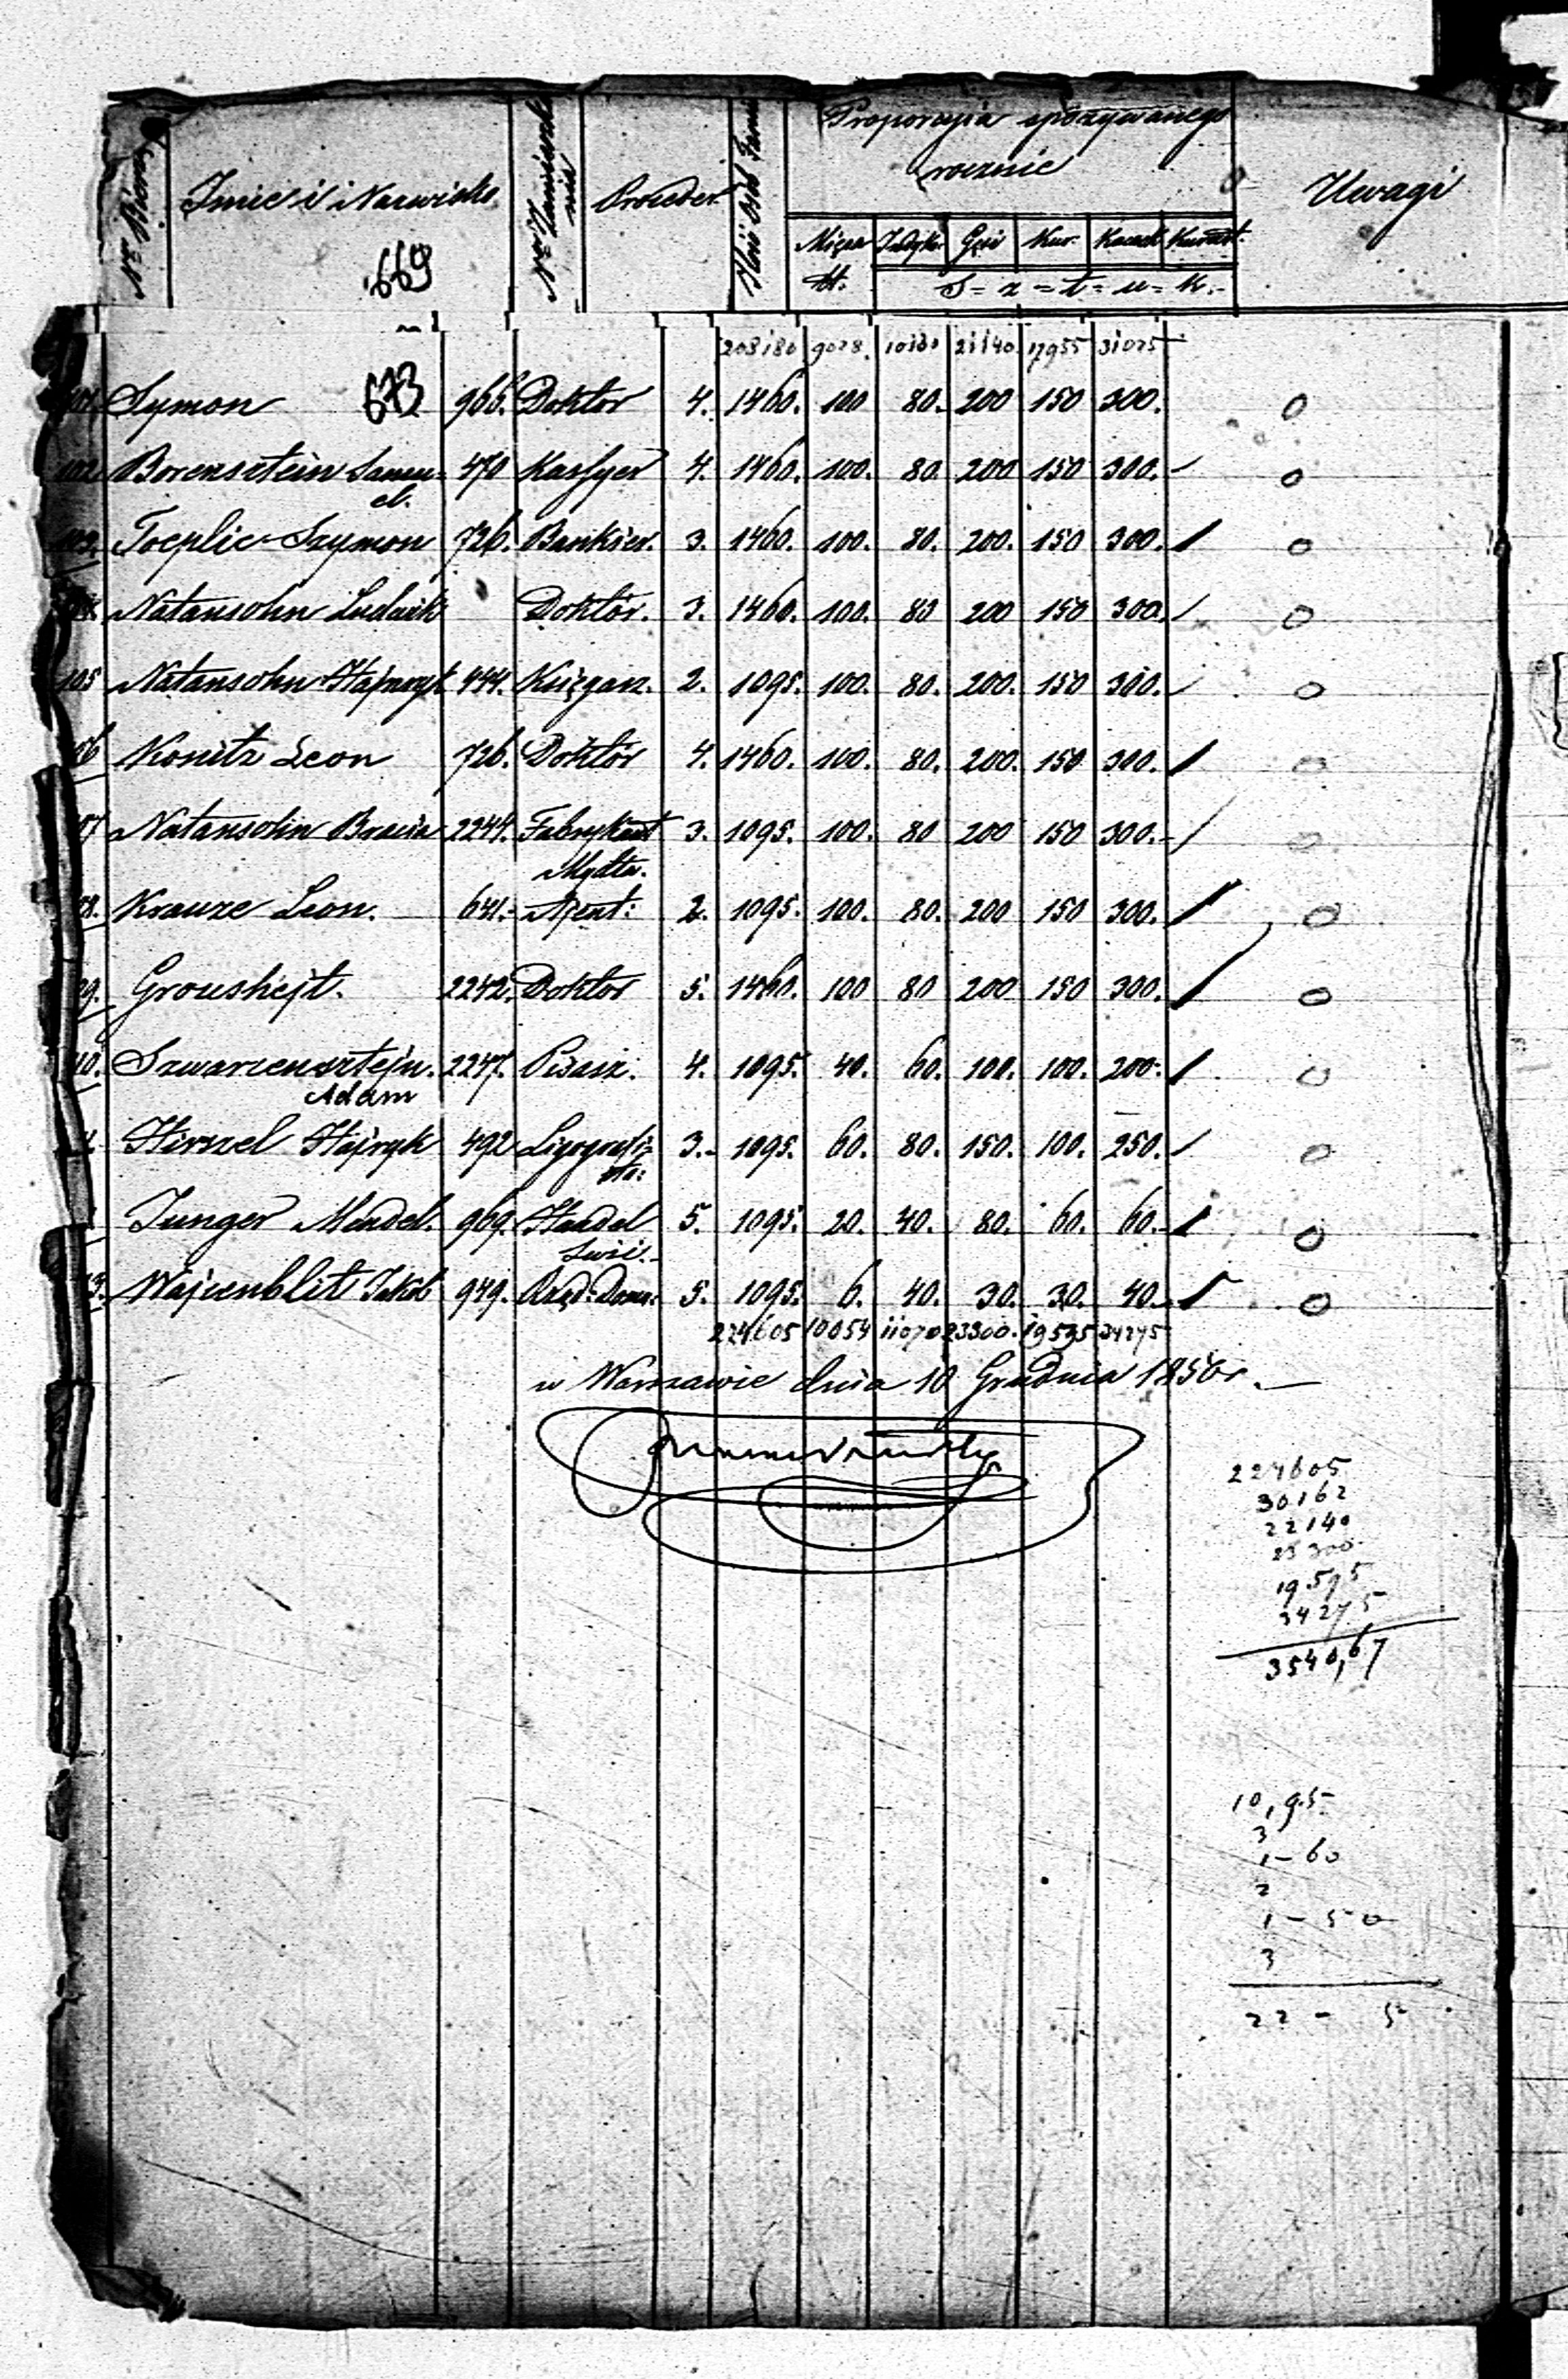 Nr Bież. Imie i Nazwisko Nr Zamieszka Proceder Ilość Osób Famil Proporcyia spożywanego Uwagi
nia rocznie
669 Mięsa Indyk. Gęsi Kur. Kaczek Kurcząt.
tt. S = z = t = u = k.
208180 9028. 10160 21140 17955 31025
101. Symon 673 966. Doktor 4. 1460. 100 80. 200 150 300. 0
102. Borensztein Samu= 470 Kassyer 4. 1460. 100. 80. 200 150 300. 0
el.
103. Toeplic Szymon 726. Bankier. 3. 1460. 100. 80. 200. 150 300. 0
104. Natansohn Ludwik Doktór. 3. 1460. 100. 80 200 150 300. 0
105 Natansohn Hajnryk 444. Księgarz. 2. 1095. 100. 80. 200. 150 300. 0
106 Konitz Leon 726. Doktór 4. 1460. 100. 80. 200. 150 300. 0
107 Natansohn Bracia 2244. Fabrykant 3. 1095. 100. 80 200 150 300. 0
Mydła.
108. Krauze Leon. 641. Ajent: 2. 1095. 100. 80. 200 150 300. 0
109. Groushejt. 2242. Doktor 5. 1460. 100 80 200 150 300. 0
110. Szwarcensztejn. 2247. Pisarz. 4. 1095. 40. 60. 100. 100. 200. 0
Adam
Hirszel Hajnryk 492 3. 1095. 60. 80. 150. 100. 250. 0
Junger Mendel. 969. Handel 5. 1095. 20. 40. 80. 60. 60. 0
Świec.
13. Wajcenblit Jakob 949. Rząd: Domu: 5. 1095. 6. 40. 30. 30. 40. 0
224605 10054 11070 23300. 19595 34275
w Warszawie dnia 10 Grudnia 1856 r.
224605
30162
22140
23300
19595
34275
3540,67
10,95
3
1 - 60
2
1 - 50
3
22 - 5